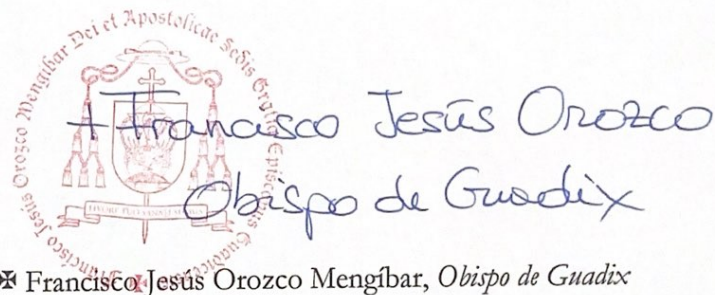 Francisco Jesús Orozco Mengíbar Dei et Apostolicae Sedis Gratia Episcopus
+ Francisco Jesús Orozco
Obispo de Guadix
✠ Francisco Jesús Orozco Mengíbar, Obispo de Guadix